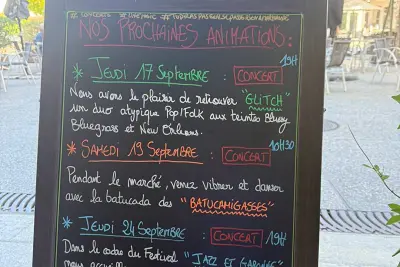 NOS PROCHAINES ANIMATIONS:
19H
* JEUDI 17 SEPTEMBRE : CONCERT
Nous avons le plaisir de retrouver "GLITCH"
un duo atypique Pop/Folk aux teintes Bluesy
Bluegrass et New Orleans.
10H30
* SAMEDI 19 SEPTEMBRE : CONCERT
Pendant le marché, venez vibrer et danser
avec la batucada des "BATUCAMIGASSES"
* JEUDI 24 SEPTEMBRE : CONCERT 19H
Dans le cadre du Festival "JAZZ ET GARONNE"